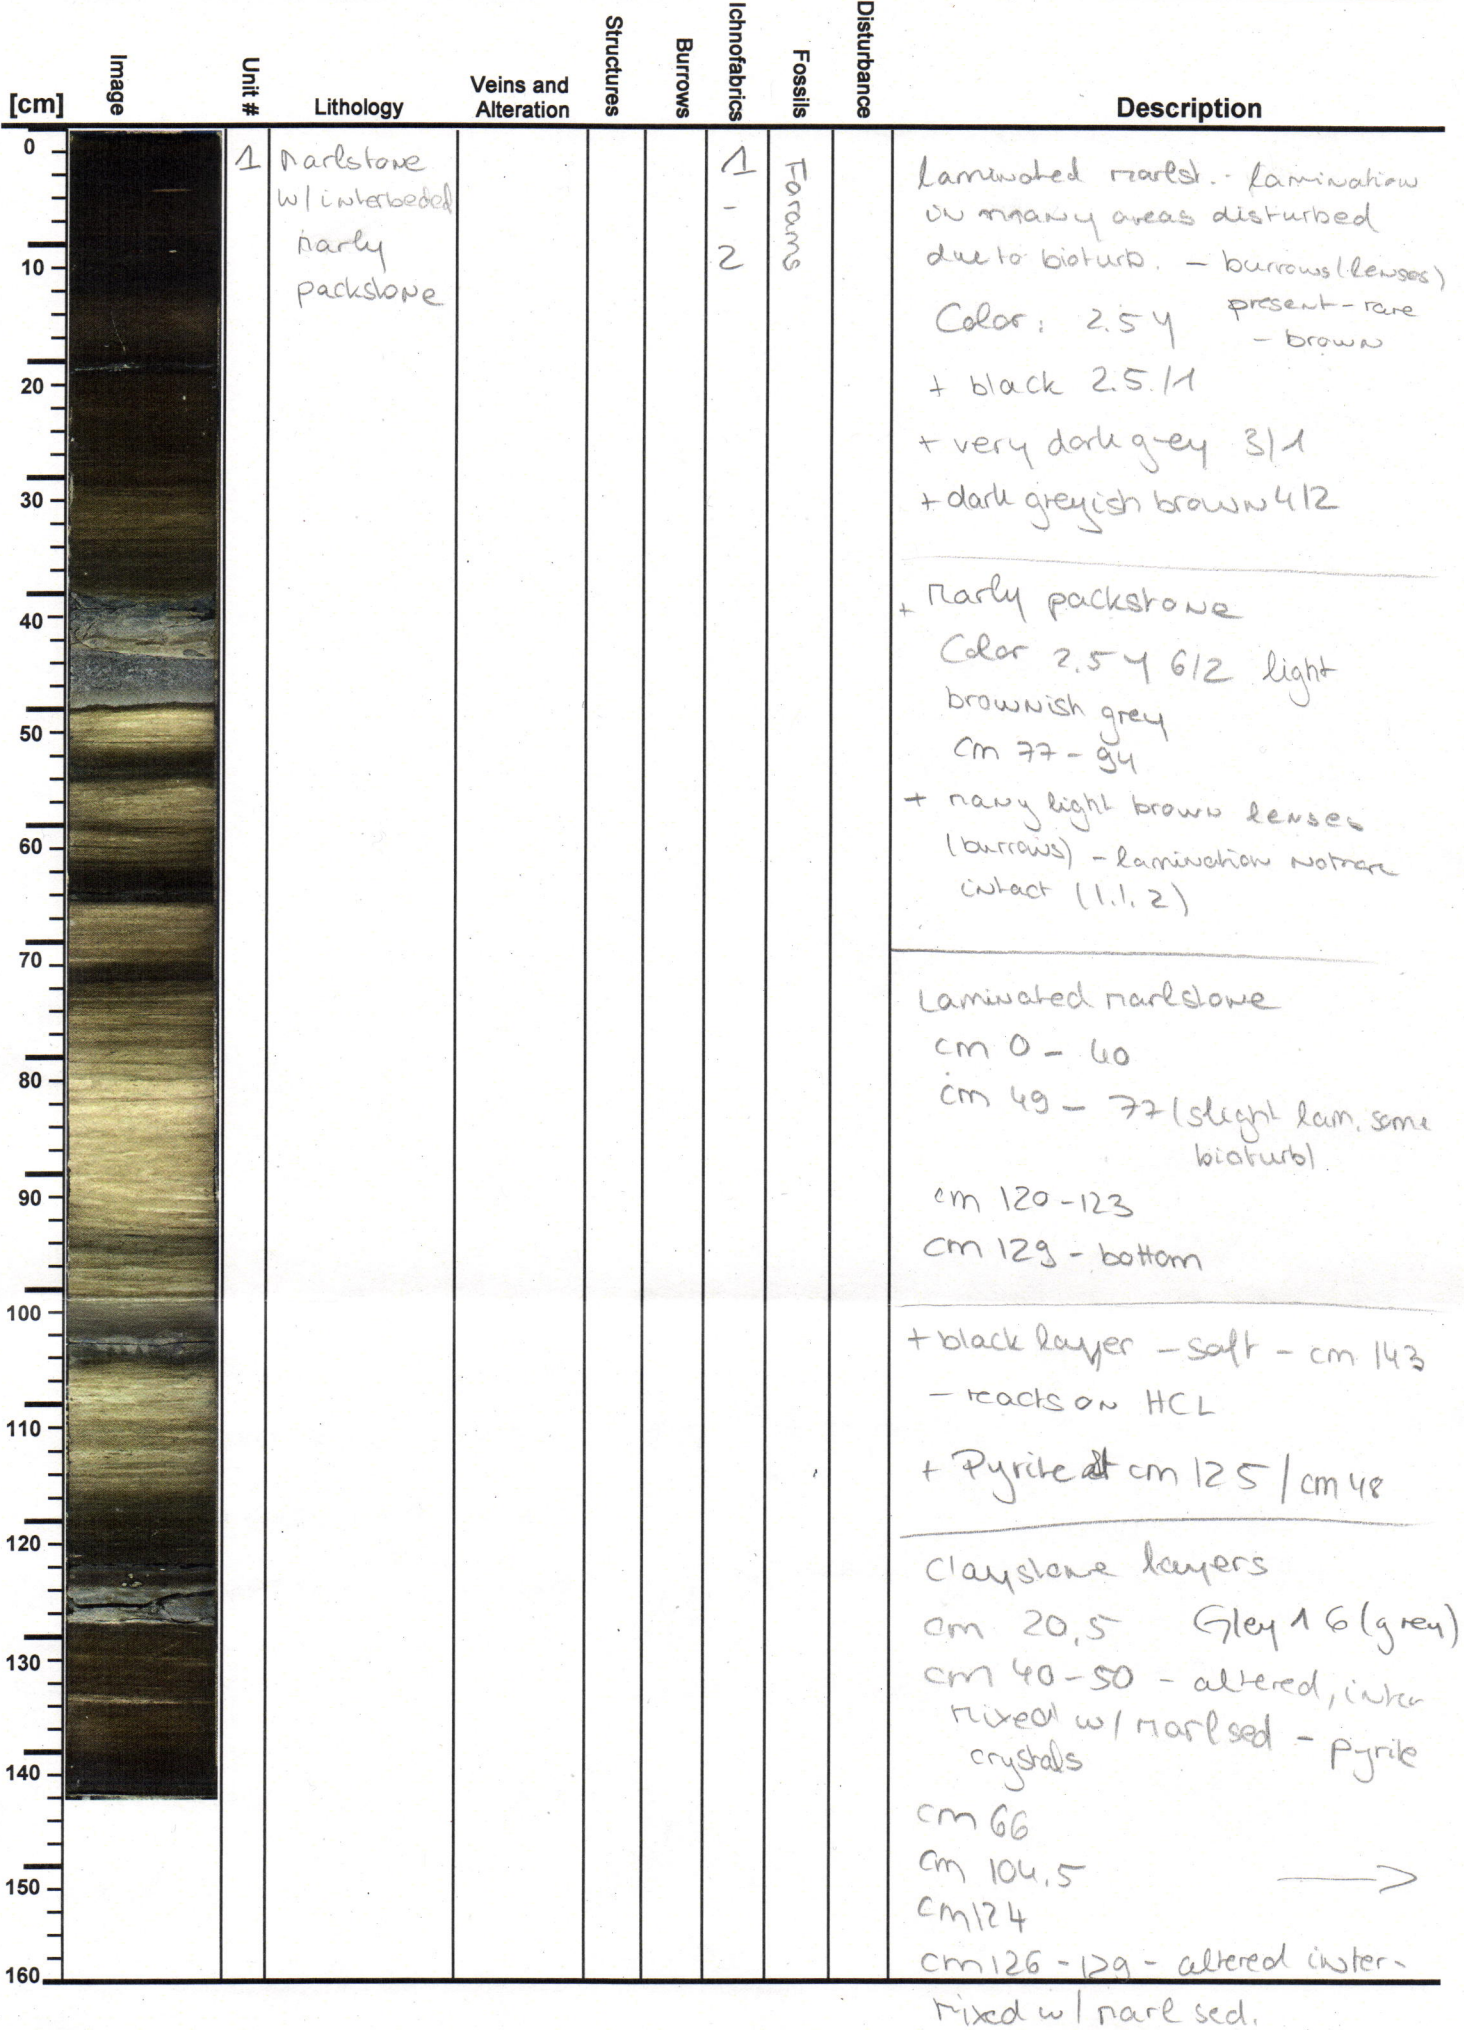 [cm]
Image
Unit #
Lithology
Veins and
Alteration
Structures
Burrows
Ichnofabrics
Fossils
Disturbance
Description
0
10
20
30
40
50
60
70
80
90
100
110
120
130
140
150
160
1
Marlstone
w/ interbeded
marly
packstone
1
-
2
Forams
laminated marlst. - lamination
in many areas disturbed
due to bioturb. - burrows (lenses)
present - rare
- brown
Color: 2.5 Y
+ black 2.5./1
+ very dark grey 3/1
+ dark greyish brown 4/2
+ Marly packstone
Color 2.5 Y 6/2 light
brownish grey
cm 77 - 94
+ many light brown lenses
(burrows) - lamination
intact (I.I. 2)
Laminated marlstone
cm 0 - 40
cm 49 - 77 (slight lam. some
bioturb)
cm 120 - 123
cm 129 - bottom
+ black layer - soft - cm 143
- reacts on HCL
+ Pyrite at cm 125 / cm 48
Claystone layers
cm 20,5 Gley 1 6 (grey)
cm 40-50 - altered, inter
mixed w/ marl sed - pyrite
crystals
cm 66
cm 104,5 →
cm 124
cm 126 - 129 - altered inter-
mixed w/ marl sed.